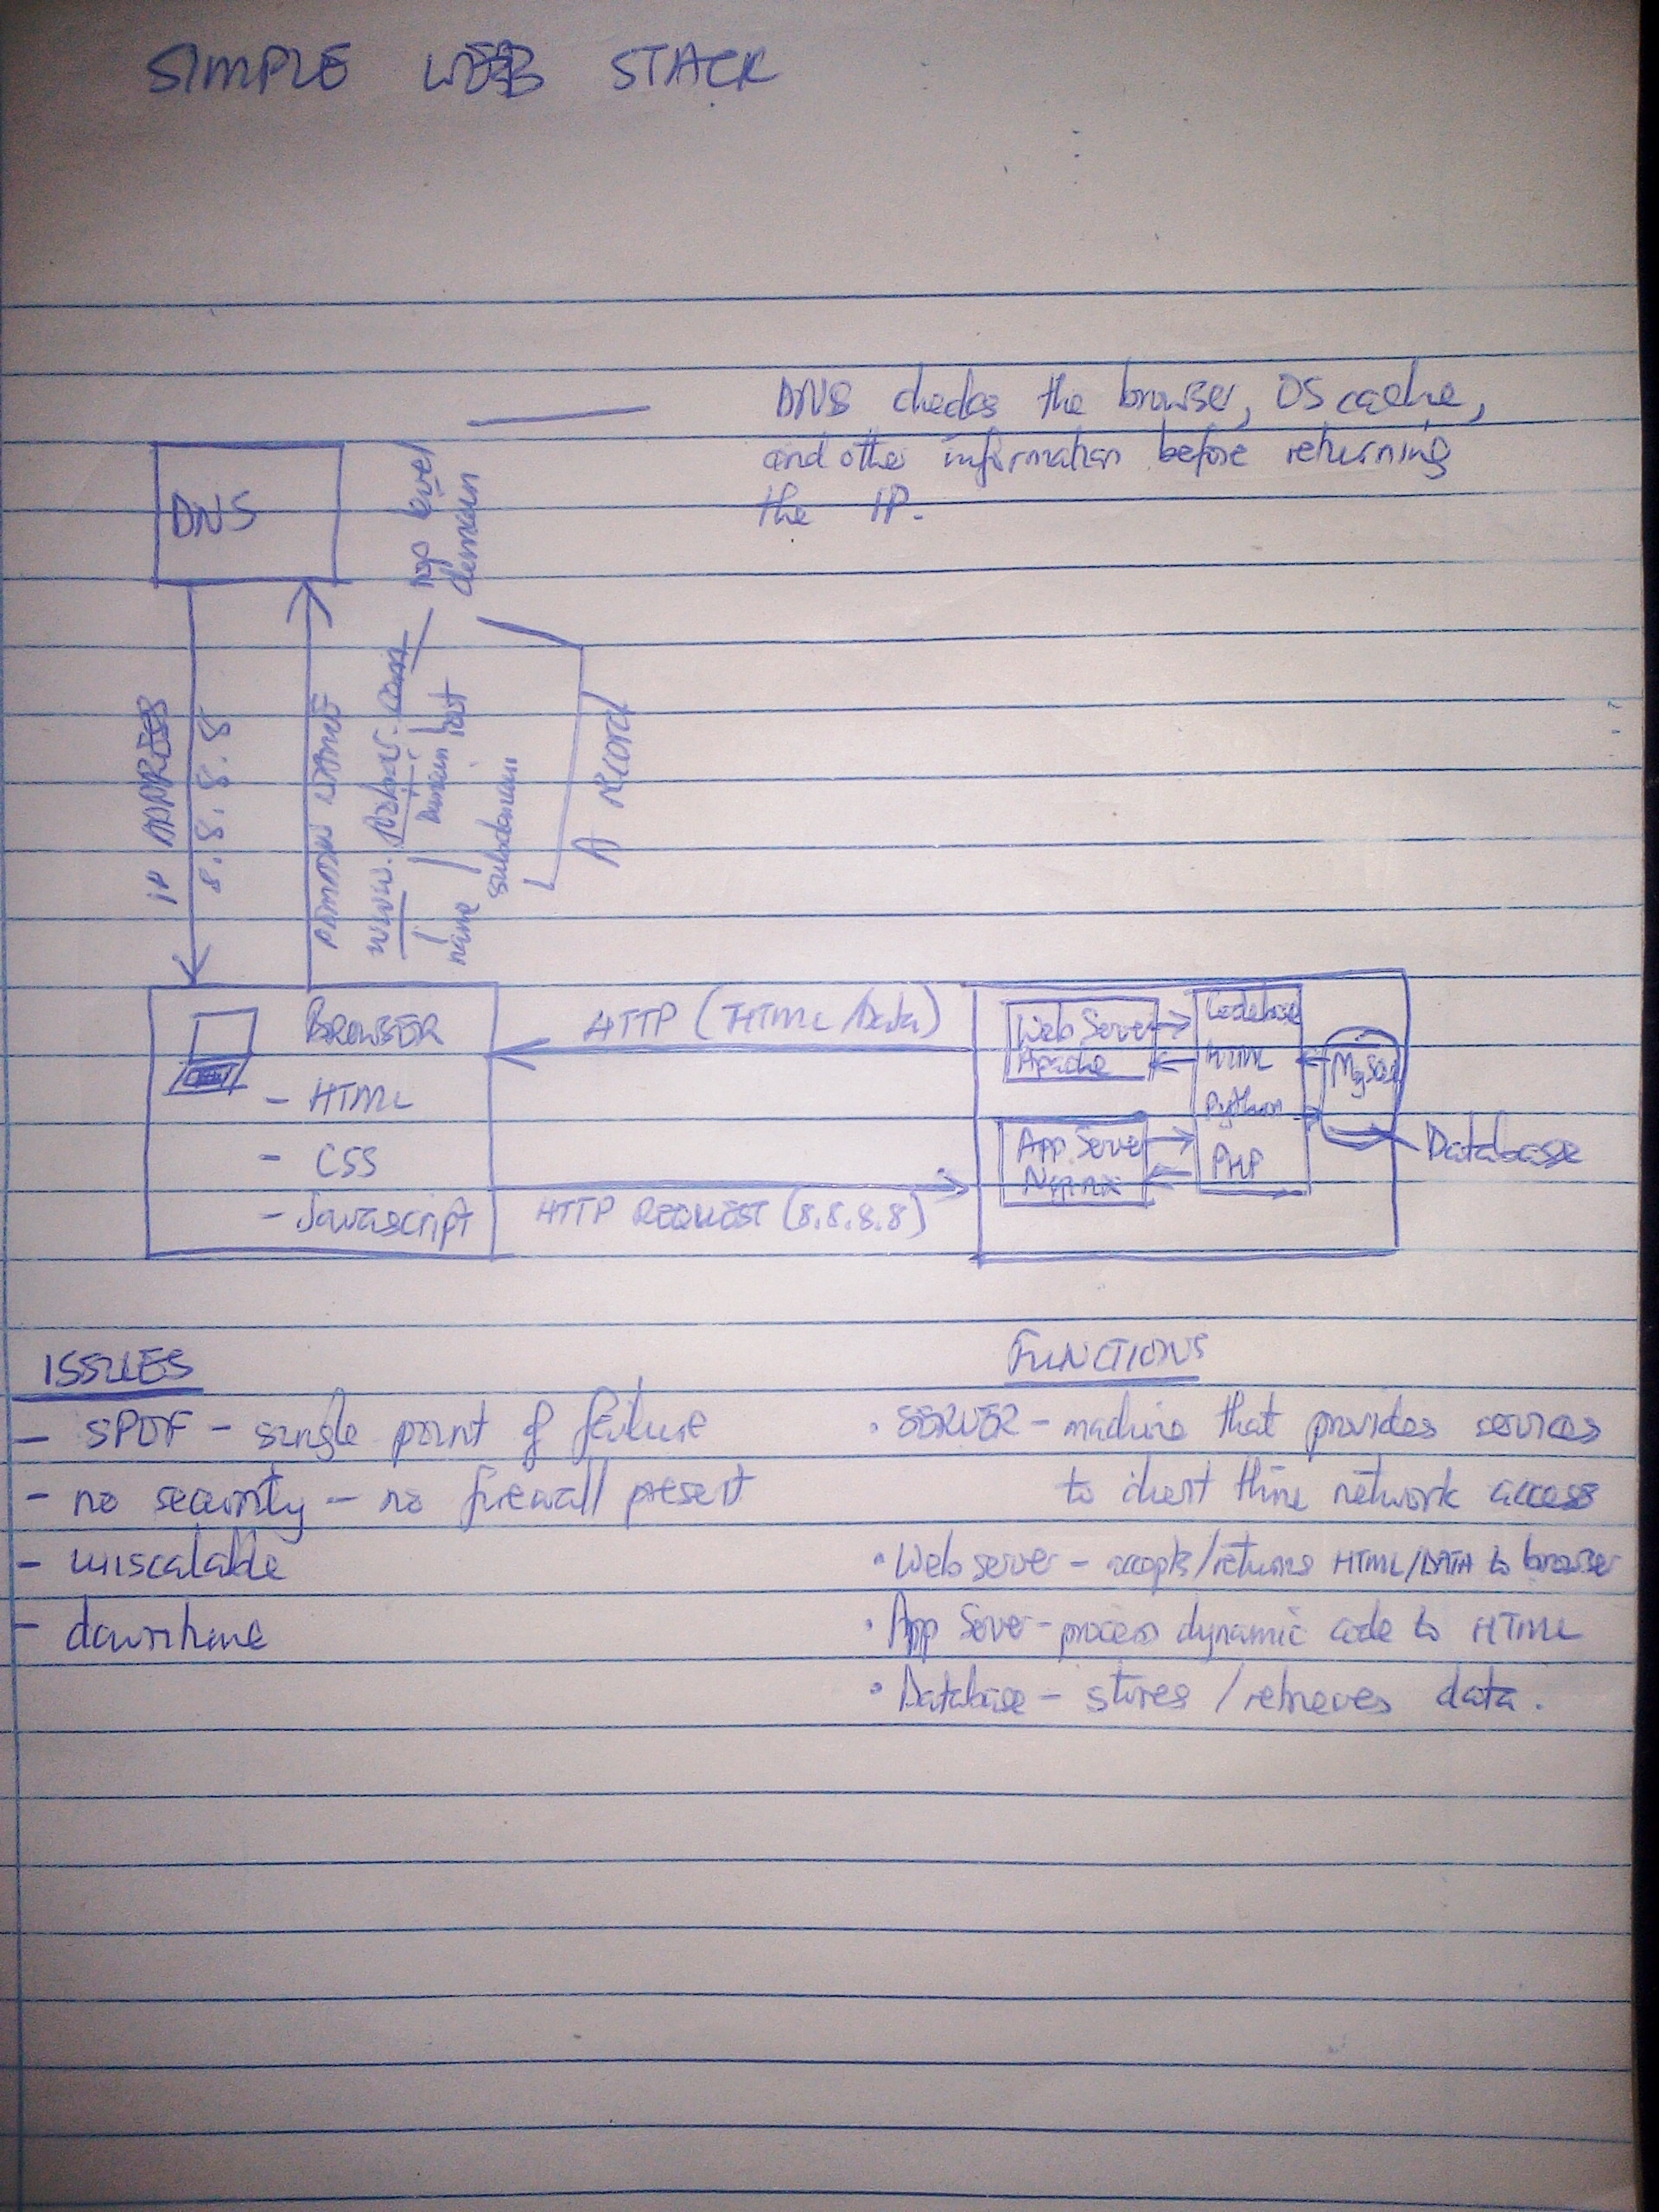 SIMPLE WEB STACK
DNS checks the browser, OS cache,
and other information before returning
the IP.
DNS
top level
domain
IP ADDRESS
8.8.8.8
DOMAIN NAME
www. .com
Domain host
name
subdomain
A record
BROWSER
- HTML
- CSS
- Javascript
HTTP (HTML/Data)
HTTP REQUEST (8.8.8.8)
Web Server
Apache
App Server
Nginx
Codebase
HTML
Python
PHP
MySQL
Database
ISSUES
- SPOF - single point of failure
- no security - no firewall present
- unscalable
- downtime
FUNCTIONS
• SERVER - machine that provides services
to client network access
• Web server - accepts/returns HTML/DATA to browser
• App Server - process dynamic code to HTML
• Database - stores / retrieves data.